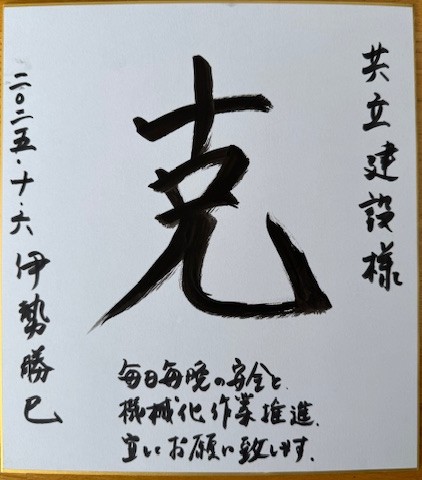 共立建設様
克
毎日毎晩の安全と、
機械化作業推進、
宜しくお願い致します。
二〇二五・十・六 伊勢勝巳